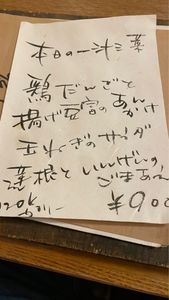 本日の一汁三菜
鶏だんごと
揚げ豆富のあんかけ
玉ねぎのサラダ
蓮根といんげんの
ごまあえ
¥900